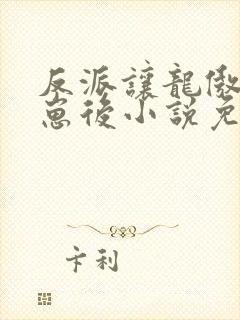 反派讓龍傲
崽後小說免
卡利